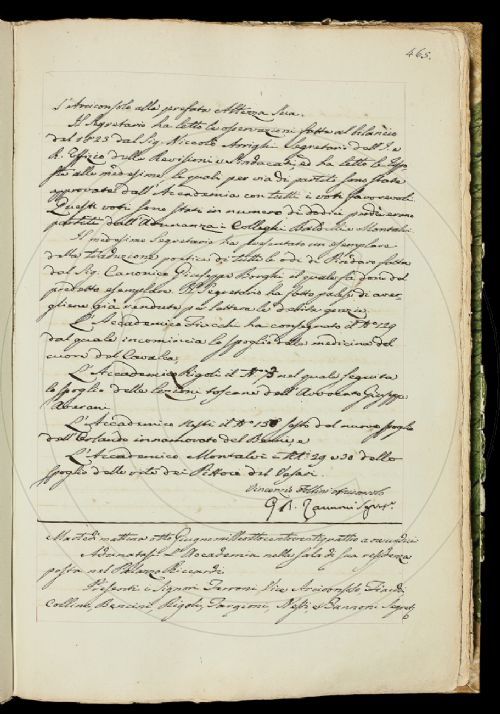 465.
l'Arciconsole alla prefata Altezza Sua.
Il Segretario ha letto le osservazioni fatte al bilancio
del 1823 dal Sig. Niccolò Arrighi Segretario dell'I. e
R. Uffizio delle Revisioni e Sindacati, ed ha letto le Rispo
ste alle medesime le quali per via di partito sono state
approvate dall'Accademia con tutti i voti favorevoli.
Questi voti sono stati in numero di dodici perché erano
partiti dall'Adunanza i Colleghi Baldelli e Montalvi.
Il medesimo Segretario ha presentato un esemplare
della traduzione poetica di tutte le odi di Pindaro fatta
dal Sig. Canonico Giuseppe Borghi il quale fa dono del
predetto esemplare. Il Segretario ha fatto palese di aver-
gliene già rendute per lettera le debite grazie.
L'Accademico Fiacchi ha consegnato il N.o 129
dal quale incomincia lo spoglio della medicina del
cuore del Cavalca,
L'Accademico Rigoli il N.o nel quale seguita
lo spoglio delle Lezioni toscane dell'Avvocato Giuseppe
Averani
L'Accademico Nesti il N.o 158 sesto del nuovo spoglio
dell'Orlando innamorato del Berni, e
L'Accademico Montalvi i N.i 29 e 30 dello
spoglio delle vite dei Pittori del Vasari.
Vincenzio Follini Arciconsolo
G. B. Zannoni Segret.o
Martedì mattina otto Giugno mille ottocento ventiquattro a ore undici
Adunatasi l'Accademia nella sala di sua residenza
posta nel Palazzo Riccardi
Presenti i Signori Ferroni, Vice Arciconsolo, Fiacchi
Collini, Bencini Rigoli, Targioni, Nesti, e Zannoni Segret.o